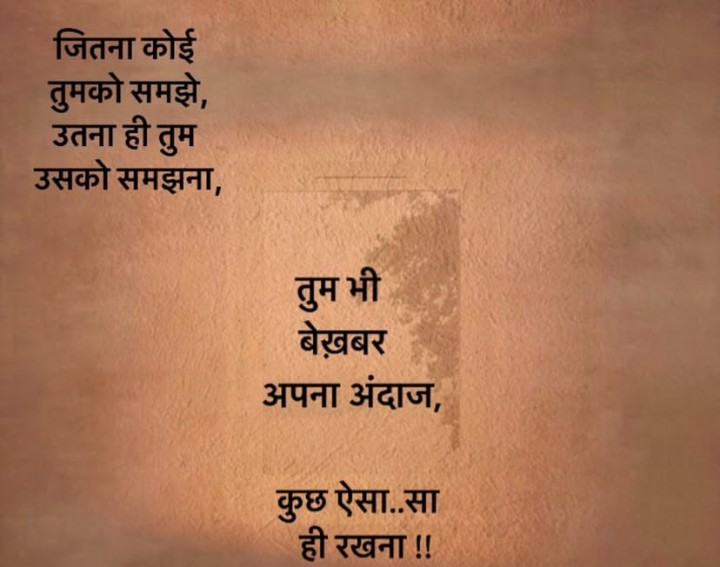 जितना कोई
तुमको समझे,
उतना ही तुम
उसको समझना,
तुम भी
बेख़बर
अपना अंदाज,
कुछ ऐसा..सा
ही रखना !!